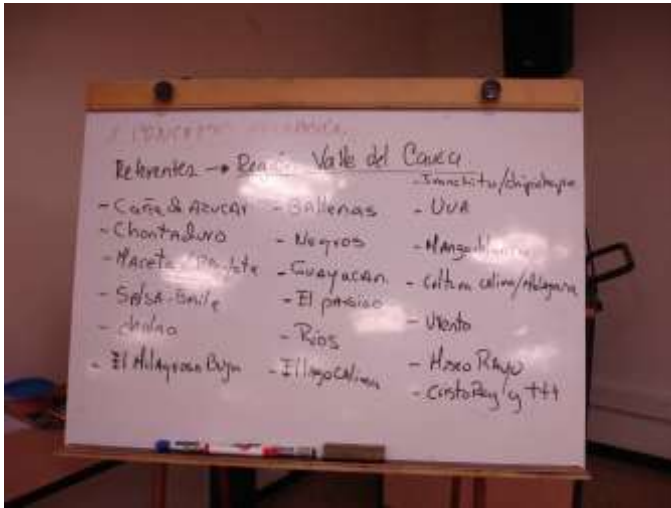 1 CONCEPTO
Referentes → Región Valle del Cauca
- Caña de Azucar
- Chontaduro
- Maceta
- Salsa - Baile
- cholao
- El Milagroso Buga
- Ballenas
- Negros
- Guayacan
- El paraiso
- Rios
- El lago Calima
- UVA
- Mango
- Cultura calima/Malagana
- Viento
- Museo Rayo
- Cristo Rey y +++